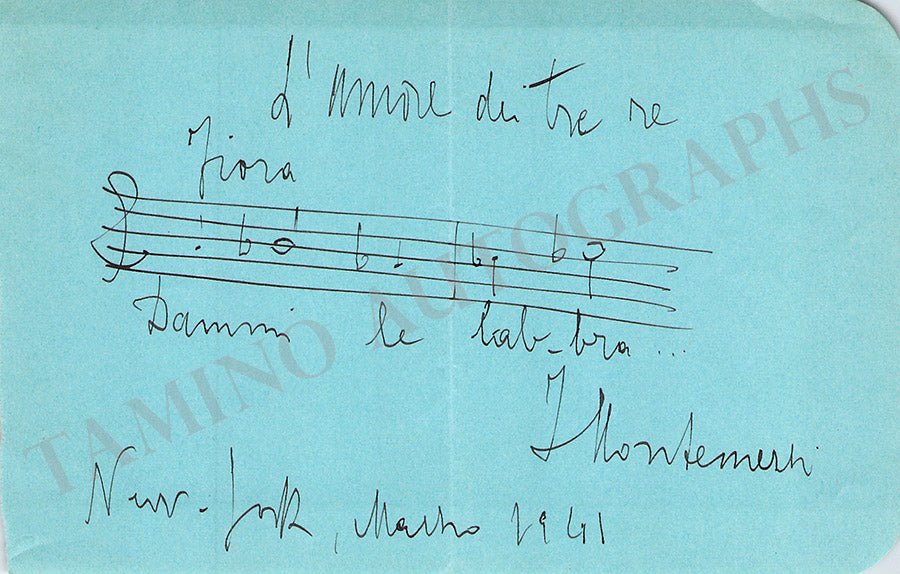 L'Amore dei tre re
Fiora
Dammi le lab-bra...
I Montemezzi
New-York, Marzo 1941
TAMINO AUTOGRAPHS